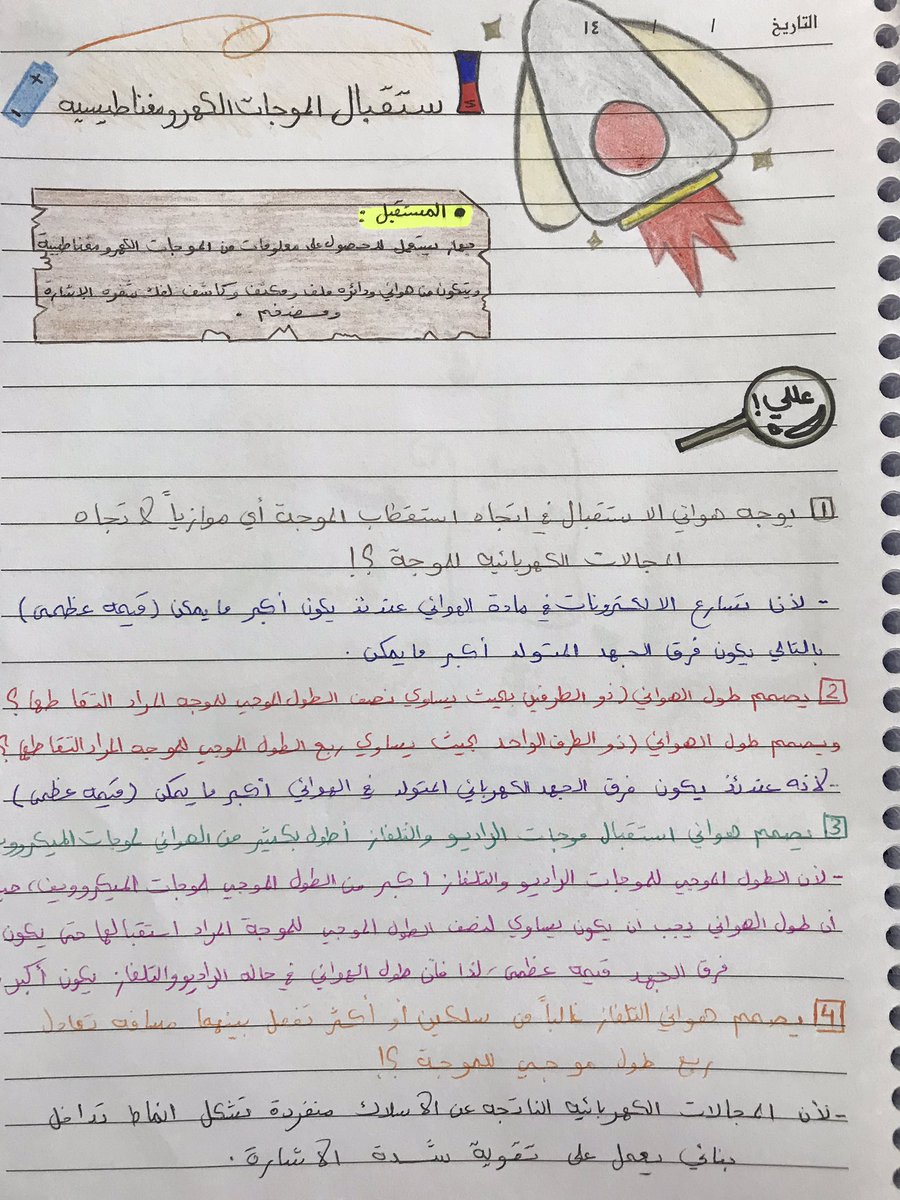 التاريخ / / ١٤
ستقبال الموجات الكهرومغناطيسيه
• المستقبل :
جهاز يستعمل للحصول على معلومات من الموجات الكهرومغناطيسية
ويتكون من هوائي ودائره ملف ومكثف وكاشف لفك شفره الإشارة
ومضخم .
عللي !
1 يوجه هوائي الاستقبال في اتجاه استقطاب الموجة أي موازياً لاتجاه
المجالات الكهربائيه للموجة ؟!
- لأن تسارع الالكترونات في مادة الهوائي عندئذ يكون أكبر ما يمكن (قيمه عظمى)
بالتالي يكون فرق الجهد المتولد أكبر ما يمكن .
2 يصمم طول الهوائي (ذو الطرفين بحيث يساوي نصف الطول الموجي للموجه المراد التقاطها ؟
ويصمم طول الهوائي (ذو الطرف الواحد بحيث يساوي ربع الطول الموجي للموجه المراد التقاطها ؟
- لأنه عندئذ يكون فرق الجهد الكهربائي المتولد في الهوائي أكبر ما يمكن (قيمه عظمى)
3 يصمم هوائي استقبال موجات الراديو والتلفاز أطول بكثير من الهوائي لموجات
- لأن الطول الموجي للموجات الراديو والتلفاز أكبر من الطول الموجي لموجات الميكروويف،
أن طول الهوائي يجب ان يكون يساوي لنصف الطول الموجي للموجة المراد استقبالها حتى يكون
فرق الجهد قيمه عظمى، لذا فأن طول الهوائي في حاله الراديو والتلفاز يكون أكبر
4 يصمم هوائي التلفاز غالباً من سلكين أو أكثر تفصل بينهما مسافه تعادل
ربع طول موجي للموجة ؟!
- لأن المجالات الكهربائيه الناتجه عن الاسلاك منفردة تشكل انماط تداخل
بنائي يعمل على تقوية شدة الاشارة .